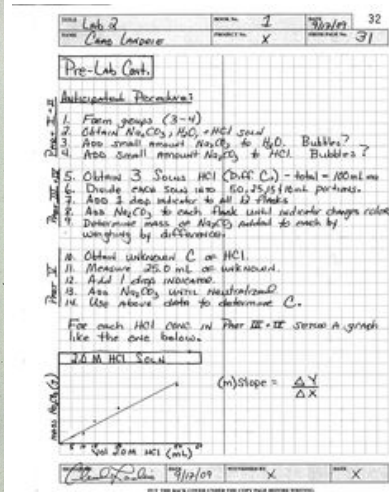 TITLE Lab 2 BOOK No. 1 DATE 9/17/09 32
NAME Chad Landrie PROJECT No. X FROM PAGE No. 31
Pre-Lab Cont.
Anticipated Procedure:
1. Form groups (3-4)
2. Obtain Na₂CO₃, H₂O, + HCl soln
3. Add small amount Na₂CO₃ to H₂O. Bubbles?
4. Add small amount Na₂CO₃ to HCl. Bubbles?
5. Obtain 3 Solns HCl (Diff C.) - total = 100 mL
6. Divide each soln into 50, 25, 15 + 10 mL portions.
7. Add 1 drop indicator to all 12 flasks
8. Add Na₂CO₃ to each flask until indicator changes color
9. Determine mass of Na₂CO₃ added to each by
weighing by difference.
10. Obtain unknown C of HCl.
11. Measure 25.0 mL of unknown.
12. Add 1 drop indicator.
13. Add Na₂CO₃ until neutralized
14. Use above data to determine C.
For each HCl conc. in Part III + IV setup a graph
like the one below.
2.0 M HCl Soln
(m) slope = ΔY
ΔX
mass Na₂CO₃ (g)
Vol 2.0M HCl (mL)
DATE 9/17/09 WITNESSED BY X DATE X
PUT THE BACK COVER UNDER THE COPY PAGE BEFORE WRITING